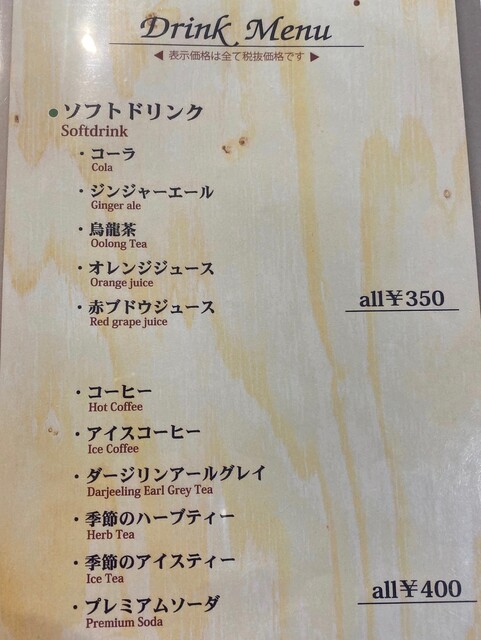 Drink Menu
◀ 表示価格は全て税抜価格です ▶
●ソフトドリンク
Softdrink
・コーラ
Cola
・ジンジャーエール
Ginger ale
・烏龍茶
Oolong Tea
・オレンジジュース
Orange juice
・赤ブドウジュース
Red grape juice
all¥350
・コーヒー
Hot Coffee
・アイスコーヒー
Ice Coffee
・ダージリンアールグレイ
Darjeeling Earl Grey Tea
・季節のハーブティー
Herb Tea
・季節のアイスティー
Ice Tea
・プレミアムソーダ
Premium Soda
all¥400